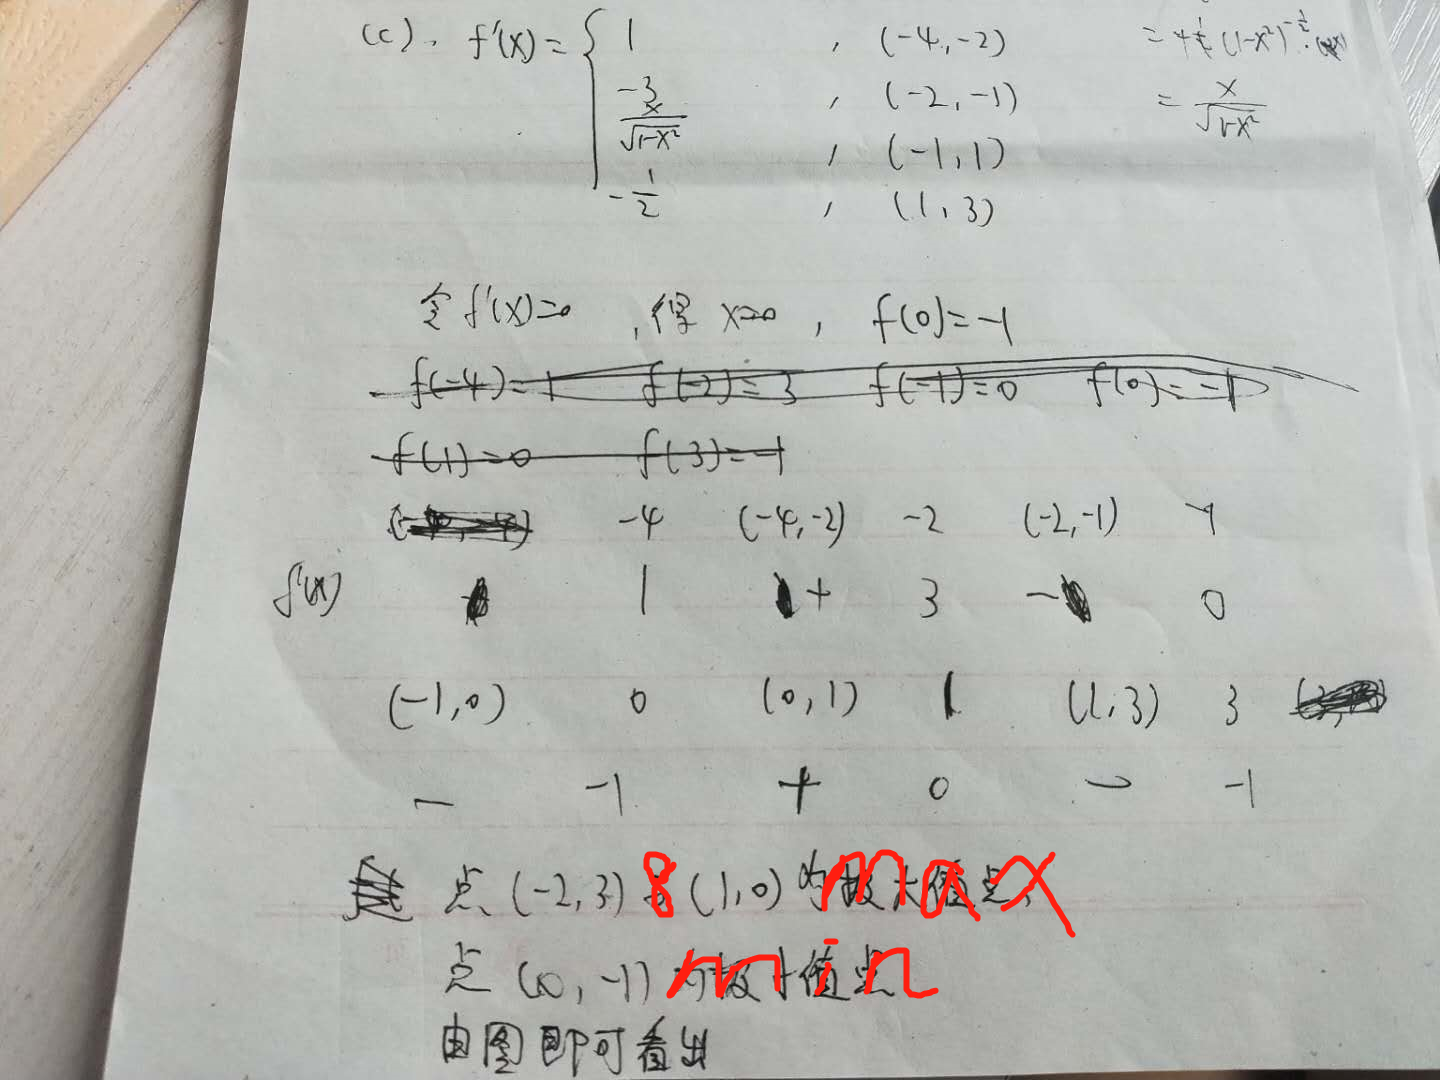 (c). f'(x)= { 1 , (-4,-2)
-3 , (-2,-1)
x/√1-x² , (-1,1)
-1/2 , (1,3)
(1-x²)^-1/2 ·
= x/√1-x²
令 f'(x)=0 , 得 x=0 , f(0)=-1
f(-4)=1 f(-2)=3 f(-1)=0 f(0)=-1
f(1)=0 f(3)=-1
-4 (-4,-2) -2 (-2,-1) -1
f'(x) 1 + 3 - 0
(-1,0) 0 (0,1) 1 (1,3) 3
- -1 + 0 - -1
点 (-2,3) 8 (1,0) 为极大值点 max
点 (0,-1) 为极小值点 min
由图即可看出